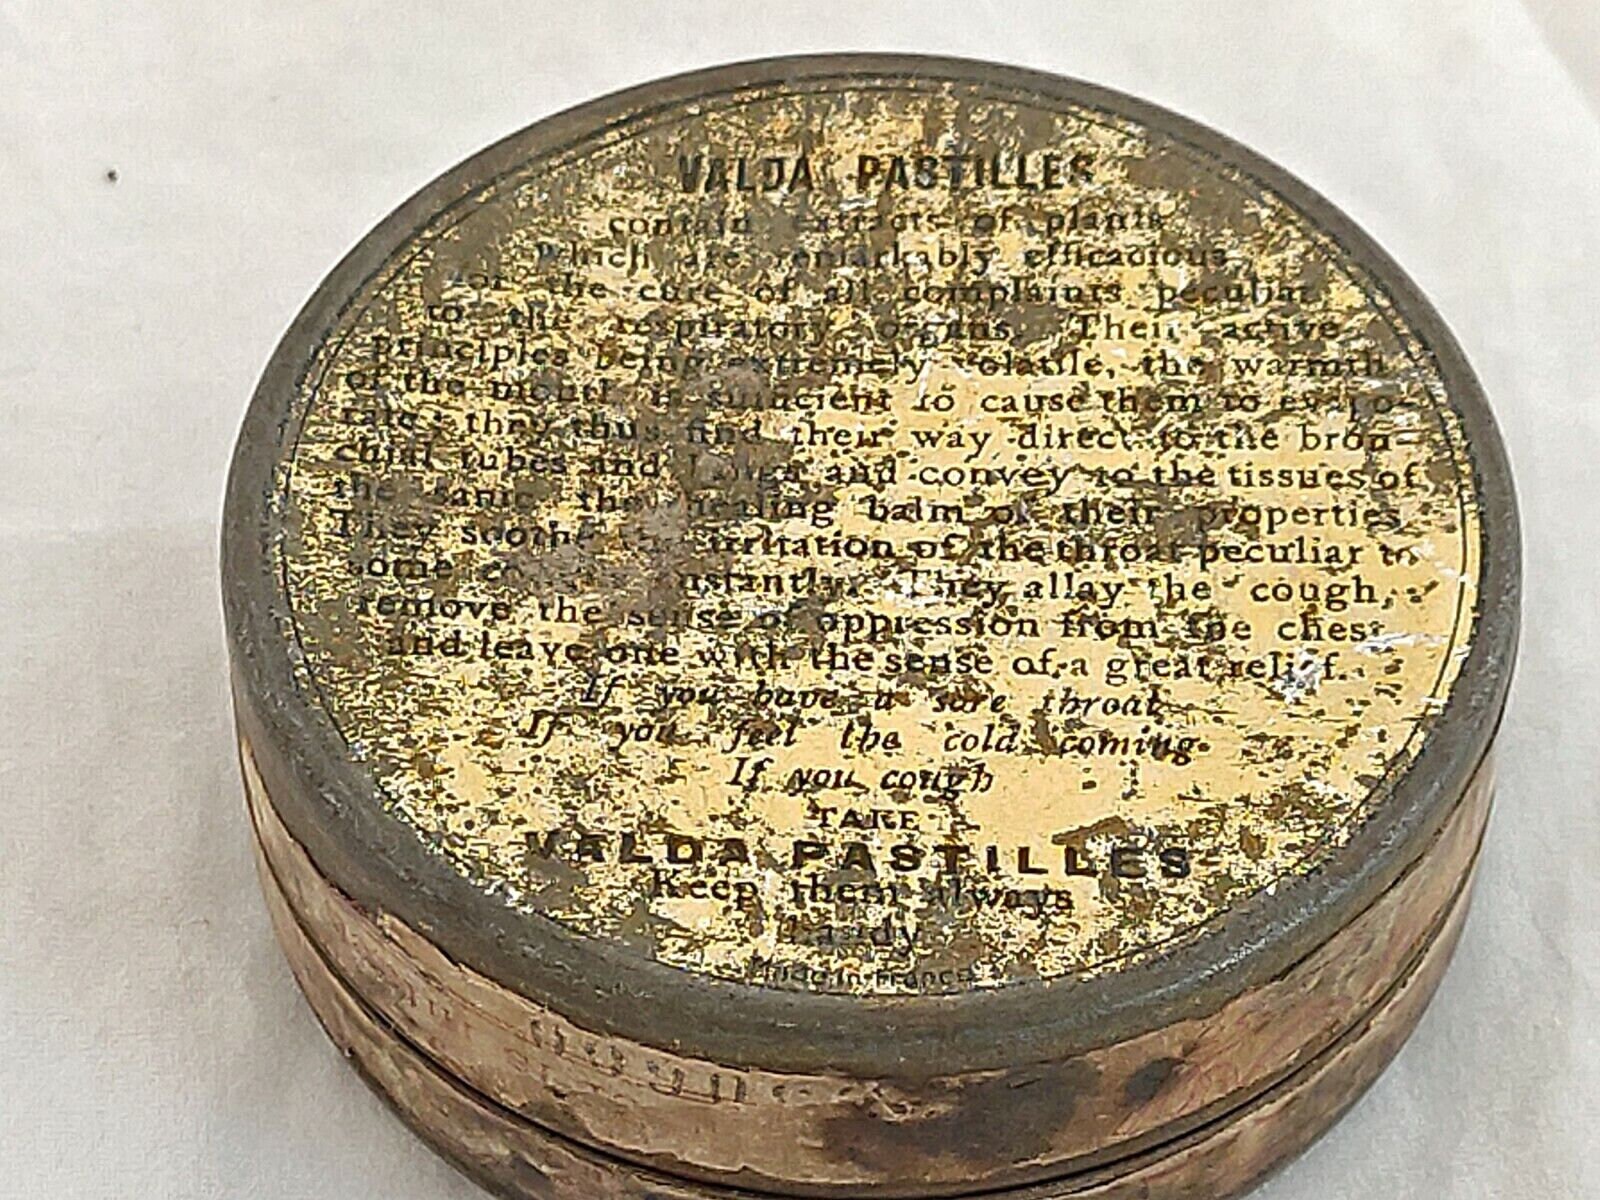 VALDA PASTILLES
contain extracts of plants
Which are remarkably efficacious
for the cure of all complaints peculiar
to the respiratory organs. Their active
Principles being extremely volatile, the warmth
of the mouth is sufficient to cause them to evapo-
rate; they thus find their way direct to the bron-
chial tubes and Lungs and convey to the tissues of
the same the healing balm of their properties
They soothe the irritation of the throat peculiar to
some instantly. They allay the cough,
remove the sense of oppression from the chest
and leave one with the sense of a great relief.
If you have a sore throat
If you feel the cold coming
If you cough
TAKE
VALDA PASTILLES
Keep them always
handy
Made in France